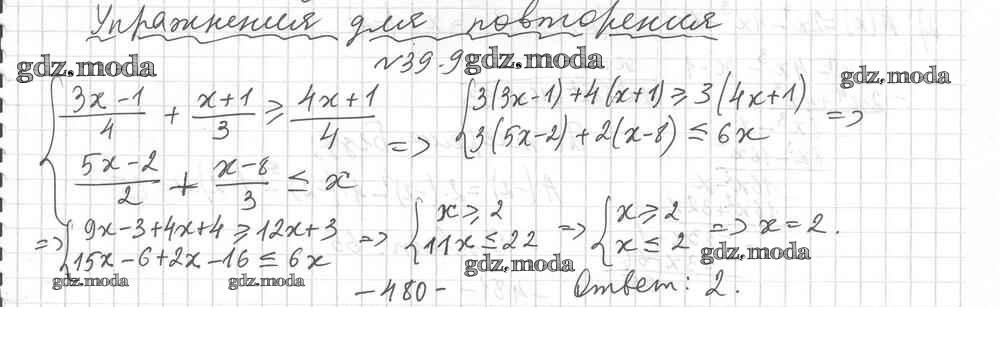 Упражнения для повторения
gdz.moda №39.9 gdz.moda gdz.moda
{ (3x-1)/4 + (x+1)/3 ≥ (4x+1)/4 => { 3(3x-1)+4(x+1) ≥ 3(4x+1) =>
(5x-2)/2 + (x-8)/3 ≤ x 3(5x-2)+2(x-8) ≤ 6x
=> { 9x-3+4x+4 ≥ 12x+3 => { x ≥ 2 => { x ≥ 2 => x = 2.
15x-6+2x-16 ≤ 6x 11x ≤ 22 x ≤ 2
gdz.moda gdz.moda gdz.moda gdz.moda
-480- Ответ: 2.